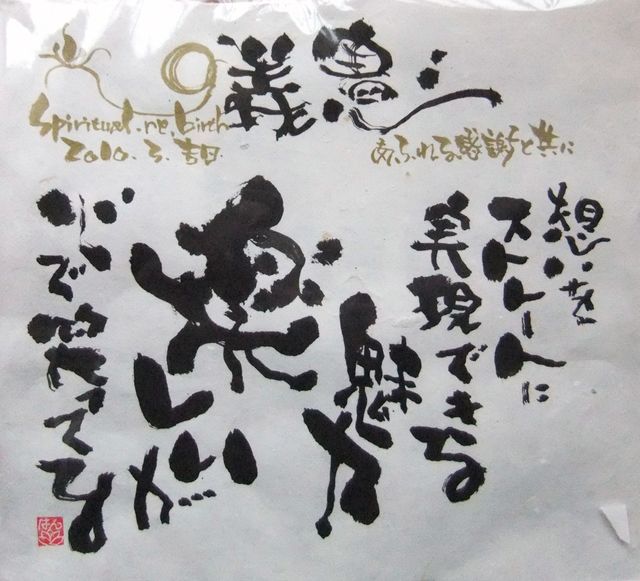 Spiritual.re.birth
2010.3.吉日
あふれる感謝と共に
想いを
ストレートに
実現できる
魅力
楽しいが
心で笑ってる